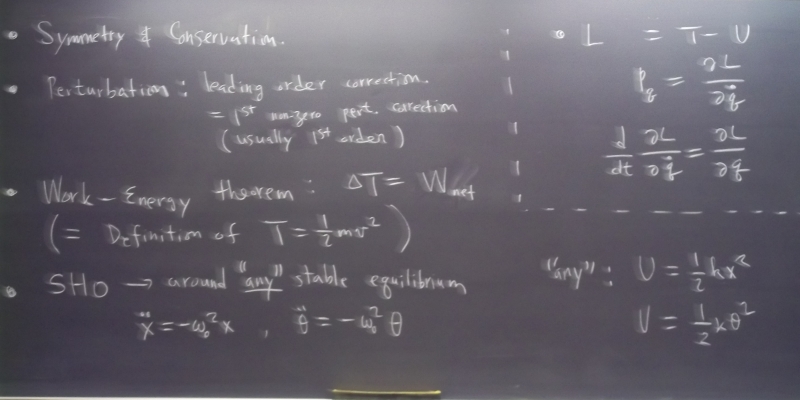 • Symmetry & Conservation.
• Perturbation: leading order correction.
= 1st non-zero pert. corection
(usually 1st order)
• Work-Energy theorem: ΔT = Wnet
(= Definition of T = 1/2 mv²)
• SHO → around "any" stable equilibrium
ẍ = -ω₀²x , θ̈ = -ω₀²θ
• L = T - U
p_q = ∂L/∂q̇
d/dt ∂L/∂q̇ = ∂L/∂q
"any": U = 1/2 kx²
U = 1/2 kθ²